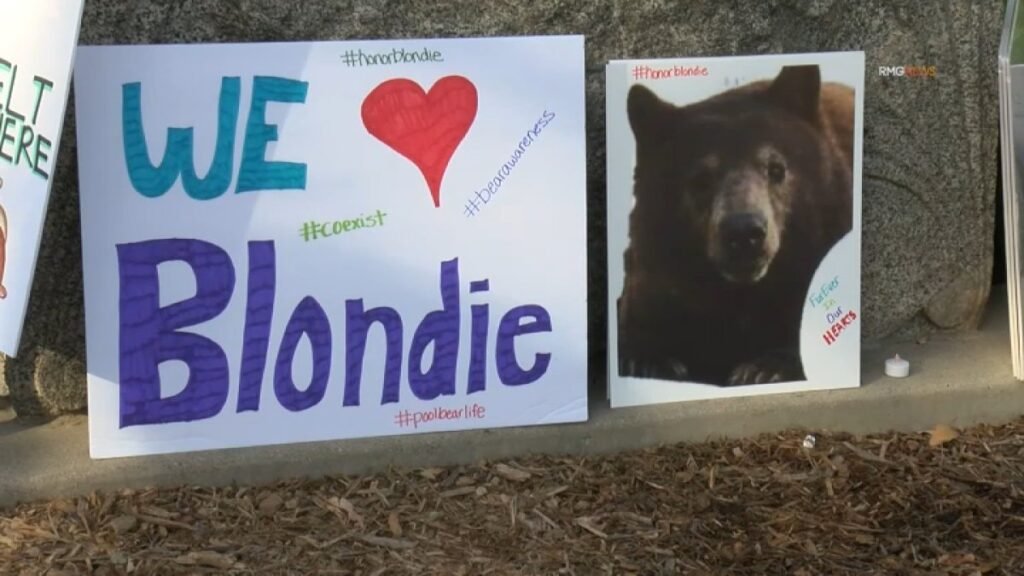 ELT
ERE
#honorblondie
WE
#bearawareness
#coexist
Blondie
#poolbearlife
#honorblondie
FurEver
In
Our
HEARTS
RMGNEWS